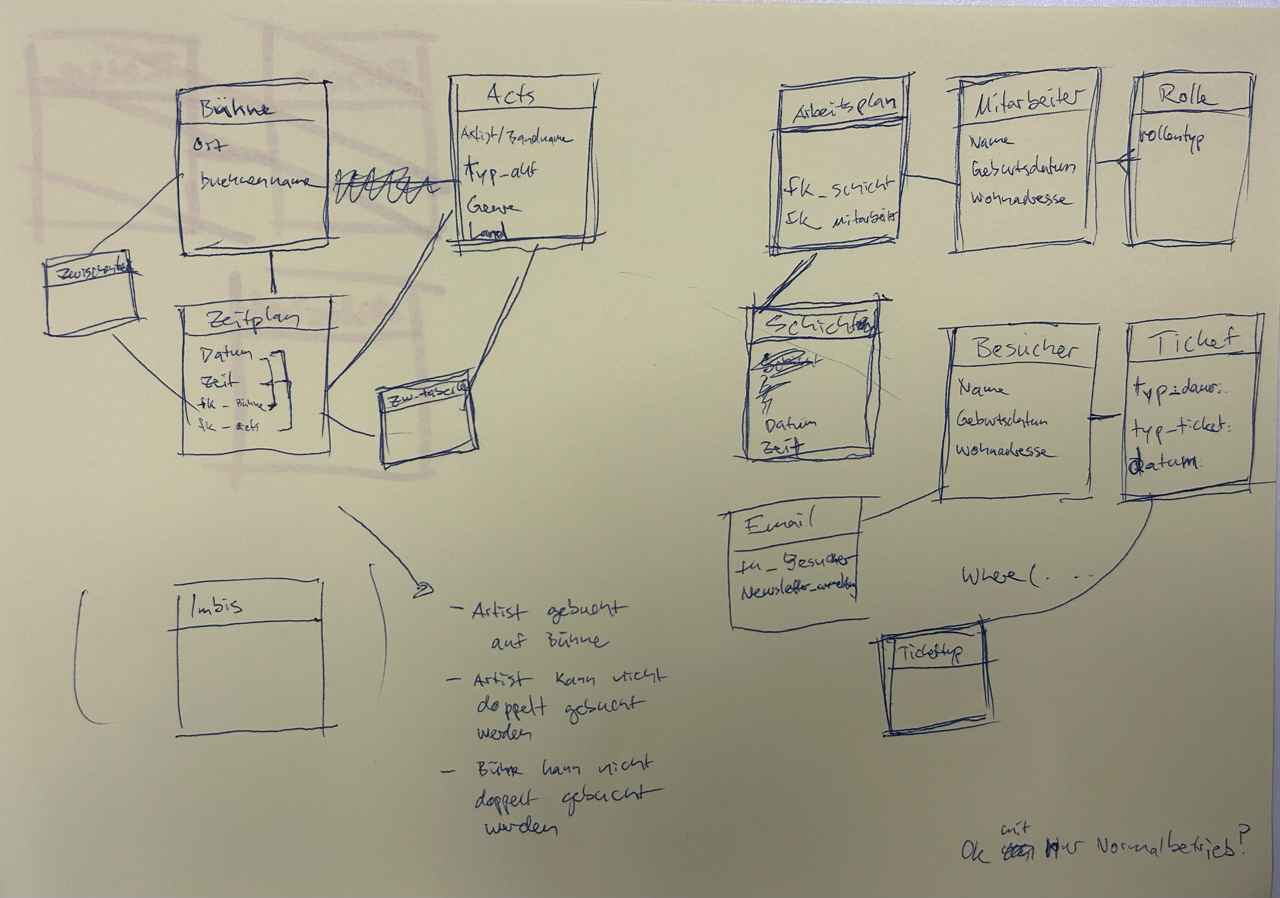 Bühne
Ort
buehnenname
Acts
Artist/Bandname
typ_auf
Genre
Land
Zeitplan
Datum
Zeit
fk_Bühne
fk_acts
Imbis
- Artist gebucht
auf Bühne
- Artist kann nicht
doppelt gebucht
werden
- Bühne kann nicht
doppelt gebucht
werden
Arbeitsplan
fk_schicht
fk_mitarbeiter
Mitarbeiter
Name
Geburtsdatum
wohnadresse
Rolle
rollentyp
Datum
Zeit
Besucher
Name
Geburtsdatum
wohnadresse
Ticket
typ_ticket:
datum
Email
fk_Besucher
Where(. . .
Tickettyp
Ok mit nur Normalbetrieb?